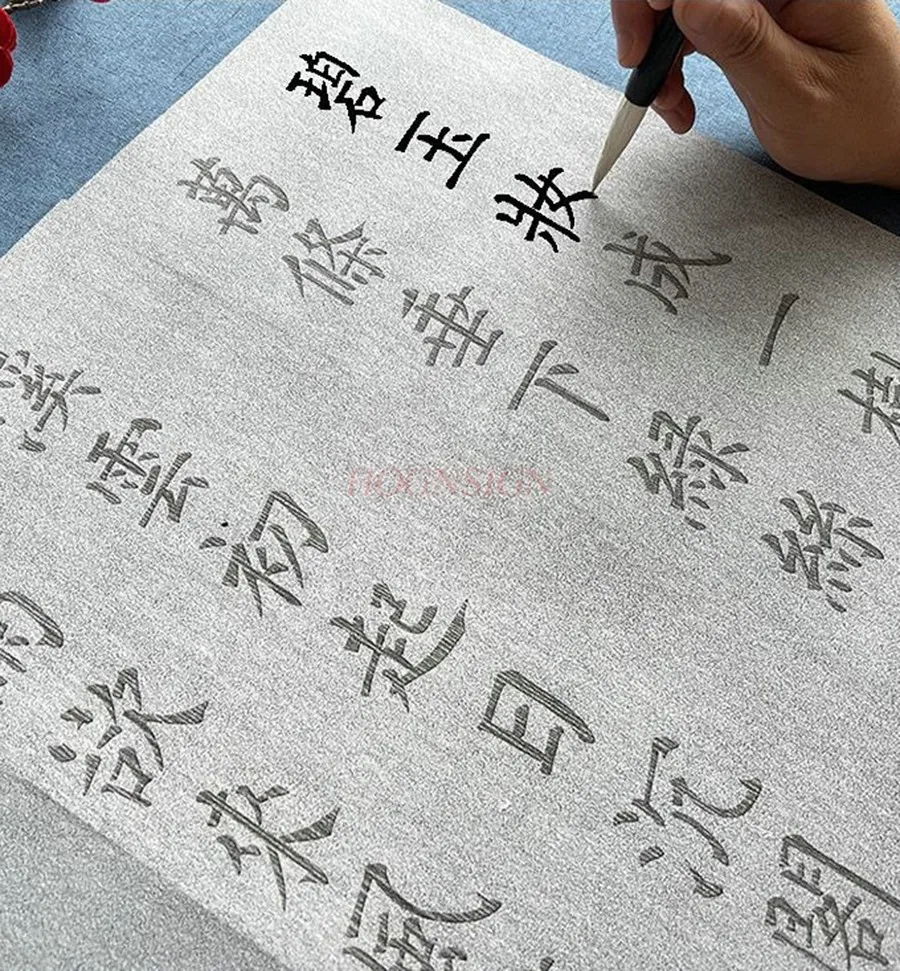 碧玉妝成一樹
萬條垂下綠絲
溪雲初起日沉閣
雨欲來風